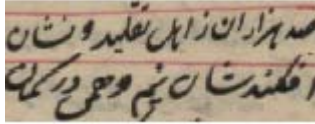 صد هزاران ز اهل تقلید و نشان
افکندشان نیم وهمی در گمان